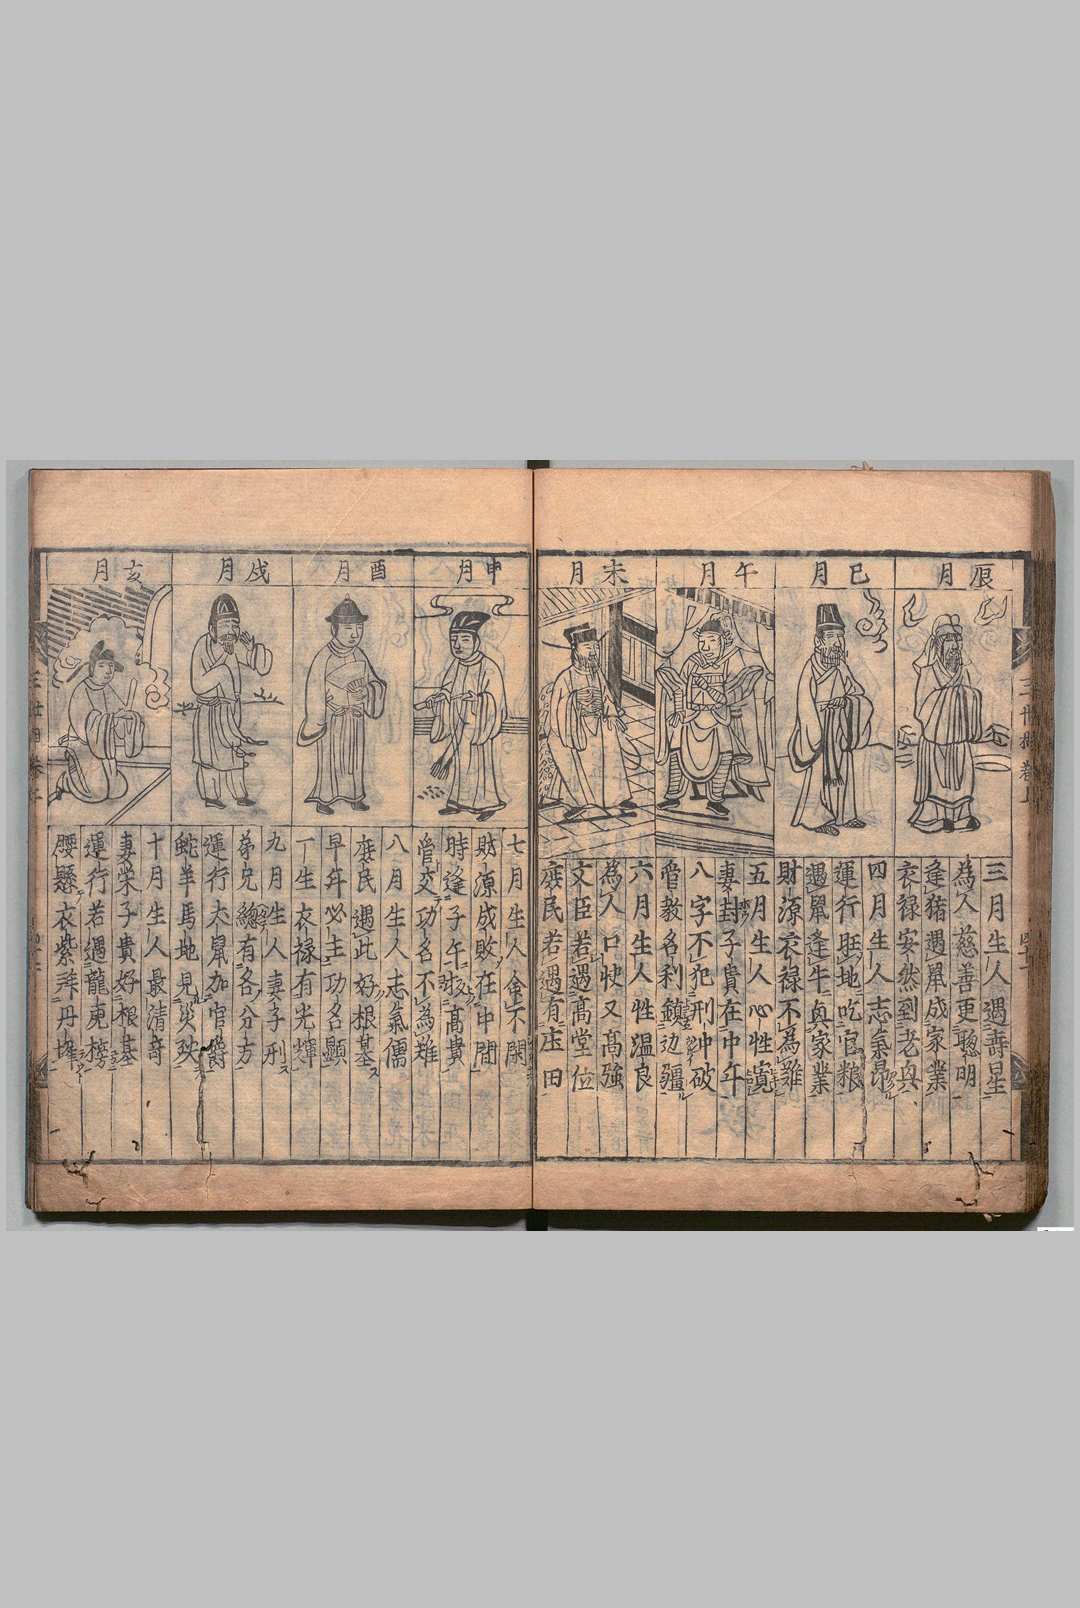 辰月
巳月
午月
未月
三月生人遇壽星
為人慈善更聰明
逢猪遇鼠成家業
衣禄安然到老貞
四月生人志氣昂
運行旺地吃官粮
遇鼠逢牛真家業
財源衣禄不為難
五月生人心性寬
妻封子貴在中年
八字不犯刑冲破
管教名利鎮边疆
六月生人性温良
為人口快又高強
文臣若遇高堂位
庶民若遇有庄田
申月
酉月
戌月
亥月
七月生人会不閑
財源成敗在中間
時逢子午权高貴
管交功名不為难
八月生人志氣儒
庶民遇此好根基
早年必主功名顯
一生衣禄有光輝
九月生人妻子刑
弟兄總有各分方
運行犬鼠加官爵
蛇羊馬地見災殃
十月生人最清奇
妻栄子貴好根基
運行若遇龍虎榜
腰懸衣紫拜丹墀